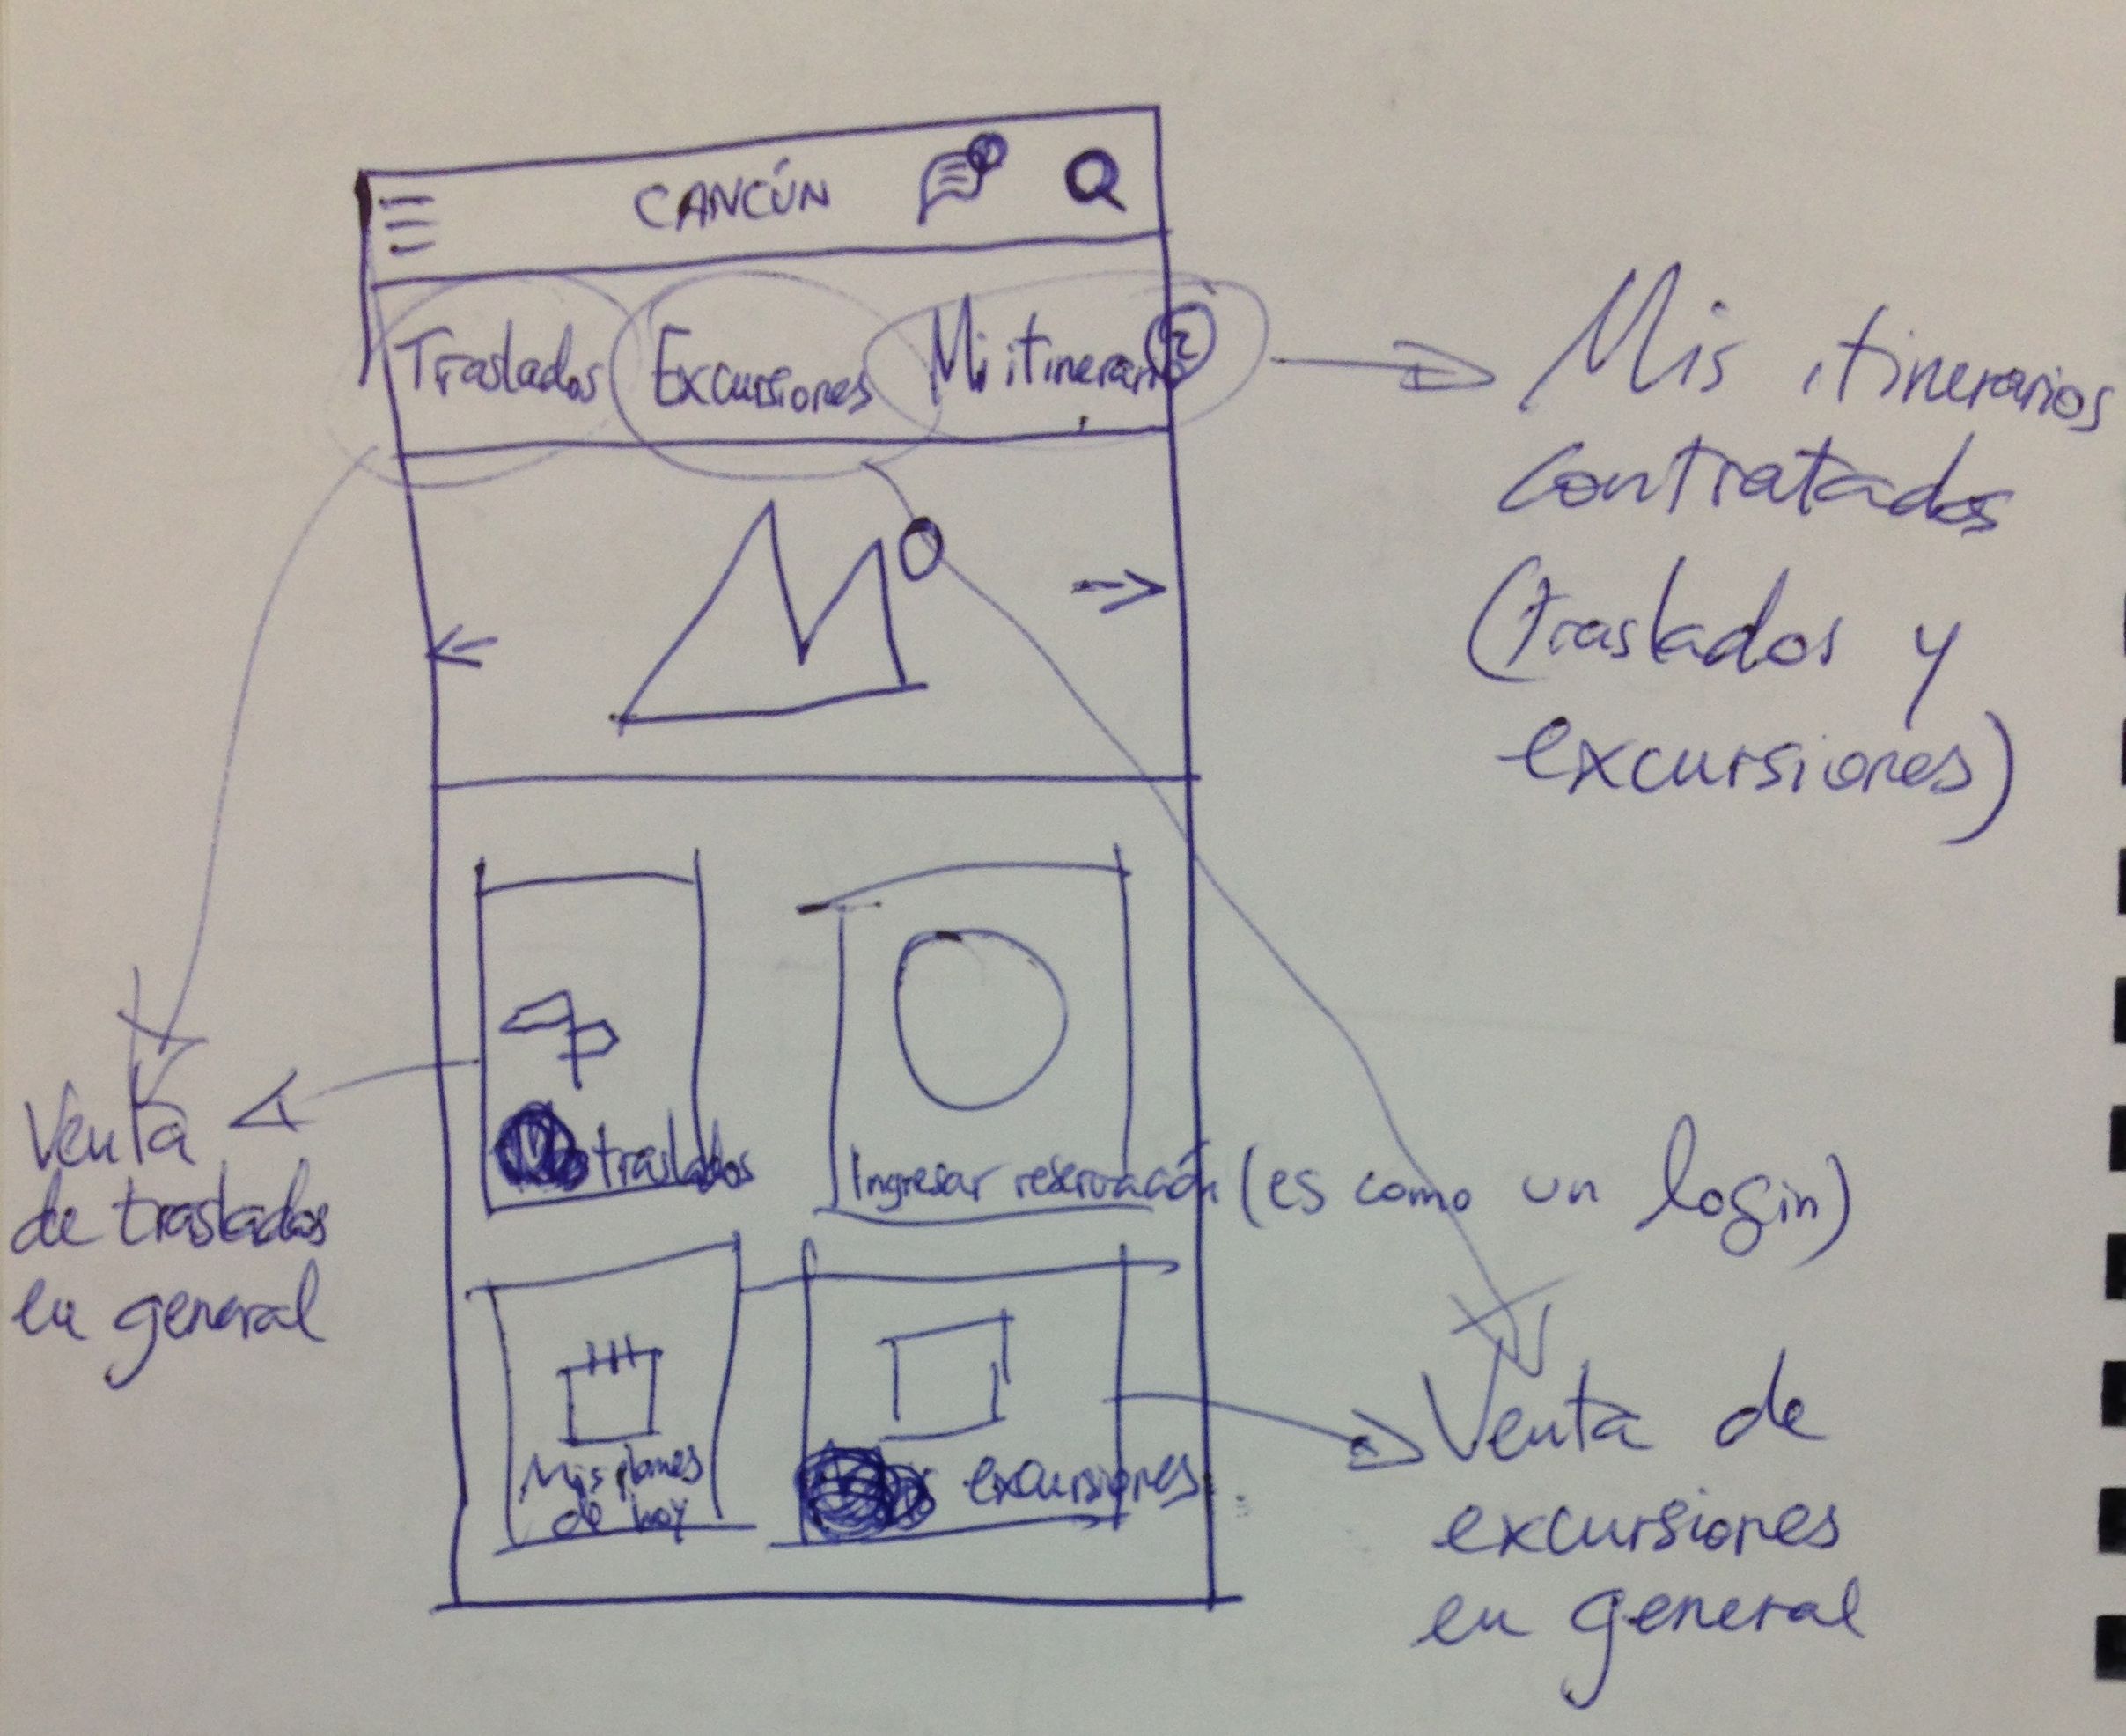 CANCÚN
Traslados Excursiones Mi itinerario 2
Mis itinerarios
contratados
(traslados y
excursiones)
traslados
Ingresar reservación (es como un login)
Venta
de traslados
en general
Mis planes
de hoy
excursiones
Venta de
excursiones
en general